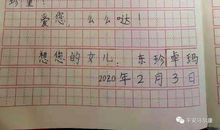 爱您，么么哒！
想您的女儿：东珍卓玛
2020年2月3日
平安马尔康